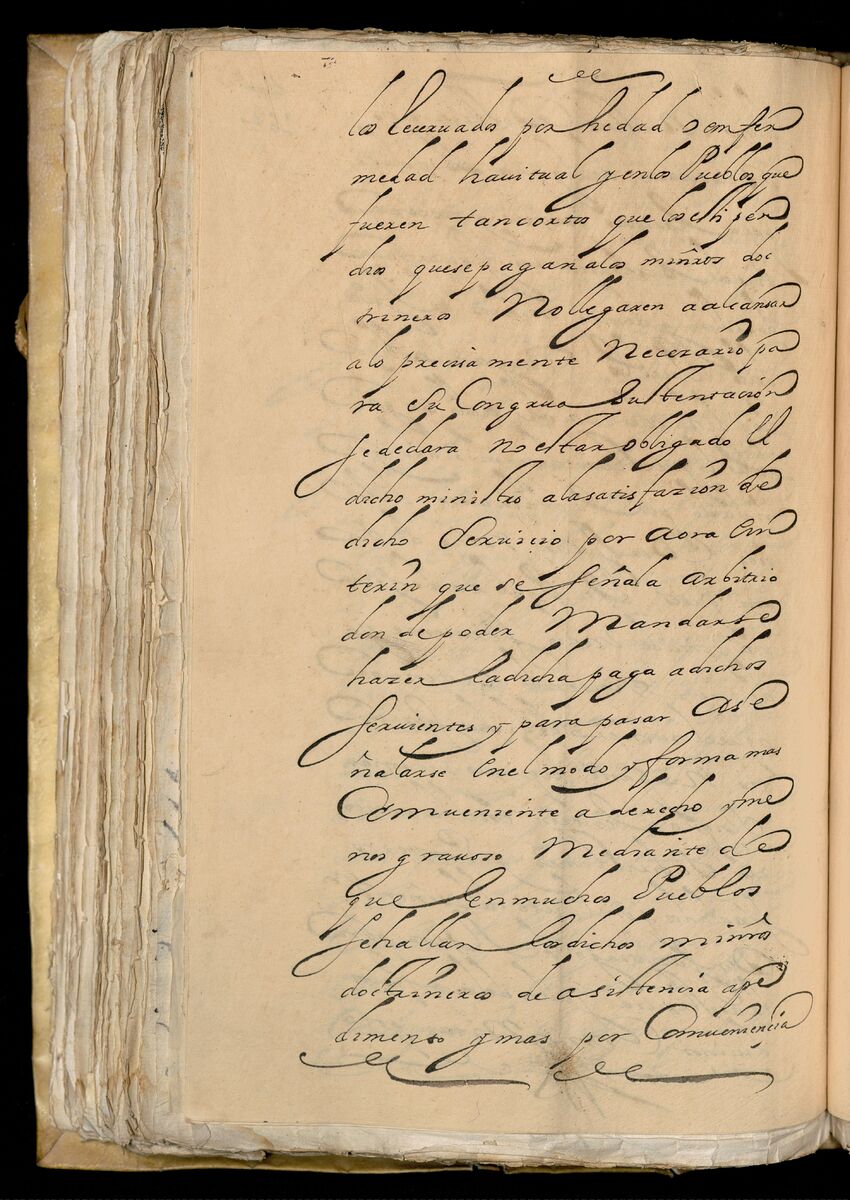 los Receruados por hedad o enfer
medad hauitual y enlos Pueblos que
fueren tancortos que los estipen
dios quesepaganalos minr̃os doc
trineros No llegaren a alcansar
alo precisamente Neceçario pa
ra su Congrua Sustentacion
sedeclara no estar obligado El
dicho ministro alasatisfazion de
dicho Seruicio por aora En
terin que se señala arbitrio
don de poder Mandarse
hazer ladicha paga adichos
seruientes y para pasar Ase
ñalarse Enel modo y forma mas
Combueniente a derecho y me
nos grauoso Mediante de
que Enmuchos Pueblos
sehallan losdichos minr̃os
doctrineros de asistencia ape
dimento y mas por Combueniençia